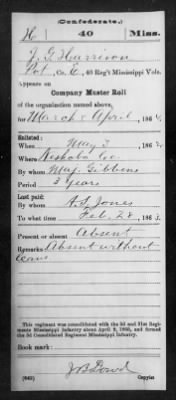 (Confederate.)
H 40 Miss.
J. G. Harrison
Pvt, Co. E, 40 Reg't Mississippi Vols.
Appears on
Company Muster Roll
of the organization named above,
for March & April, 186
Enlisted:
When May 3, 186
Where Neshoba Co.
By whom Maj. Gibbens
Period 3 years
Last paid:
By whom A. S. Jones
To what time Feb. 28, 1863
Present or absent Absent
Remarks: Absent without
leave
This regiment was consolidated with the 3d and 31st Regiments Mississippi Infantry about April 9, 1865, and formed
the 3d Consolidated Regiment Mississippi Infantry.
Book mark:
J B Dowd
(642) Copyist.